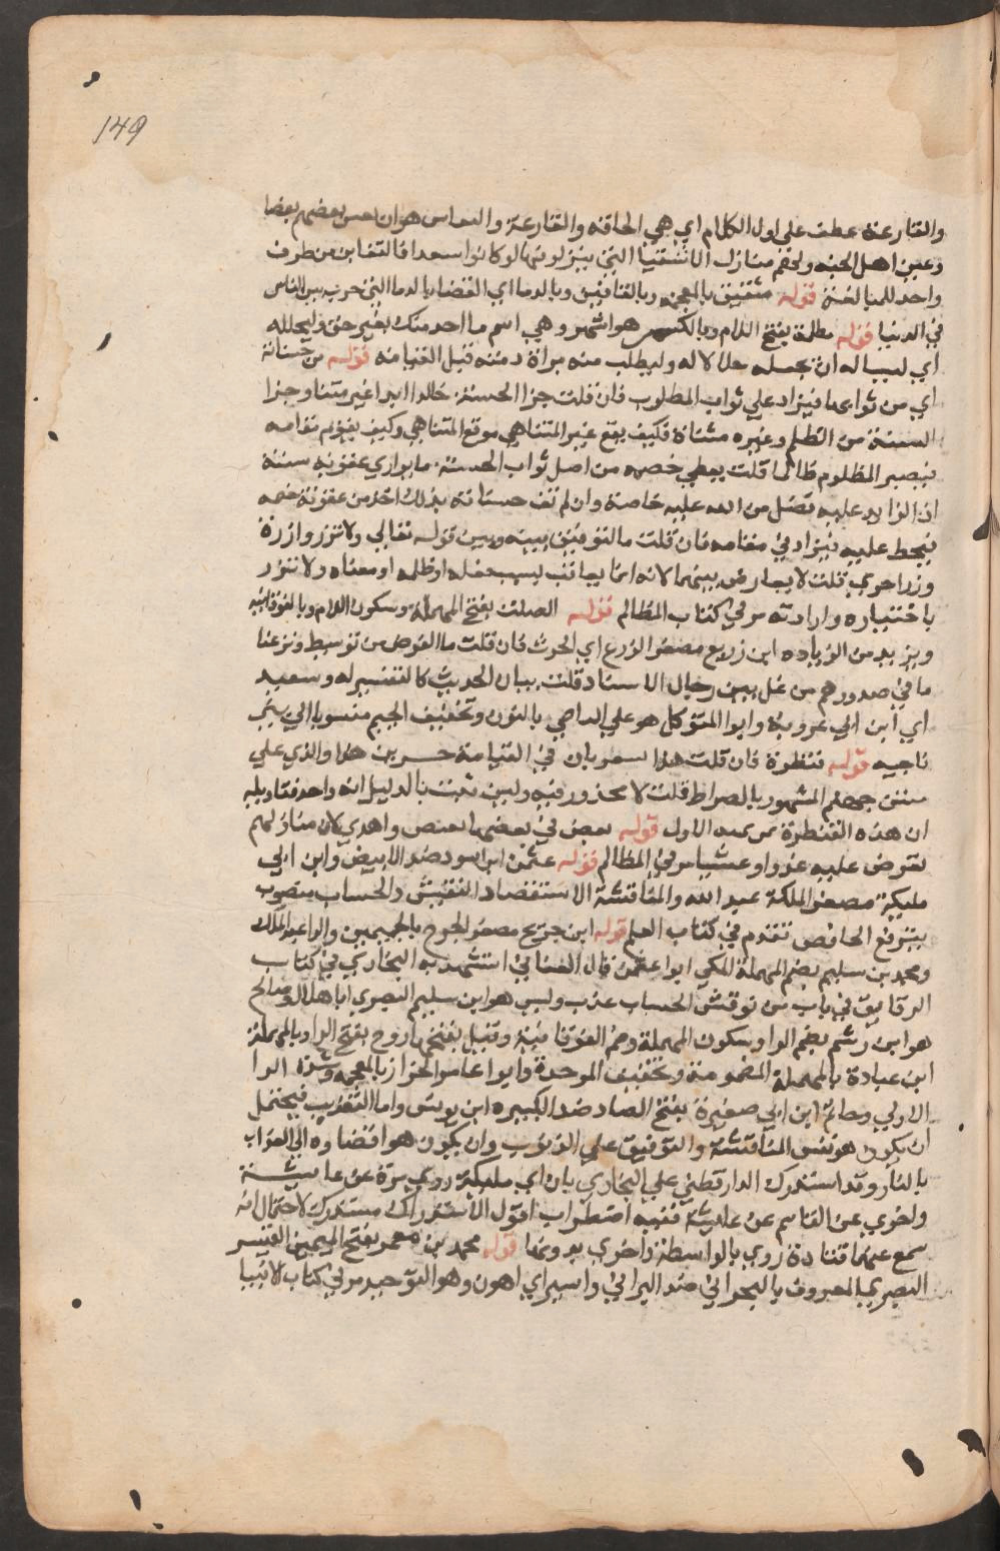 149
والقارعة عطف على اول الكلام اي هي الحاقه والقارعة والتغابن هو ان يغبن بعضهم بعضا
وغبن اهل الجنه منازل الاشقيا التي ينزلونها لو كانوا سعدا فالتغابن من طرف
واحد للمبالغة قوله شقيق بالمعجمه وبالقافين وبالدما اي القضايا بالدما التي جرت بين الناس
في الدنيا قوله مظلمة بفتح اللام وبالكسر هو اشهر وهي اسم ما اخذ منك بغير حق وليتحلله
اي ليساله ان يجعله حلالا له وليطلب منه براة ذمته قبل القيامة قوله من حسناته
اي من ثوابها فيزاد على ثواب المظلوم فان قلت جزا الحسنة خالدا ابدا غير متناه وجزا
السيئة من الظلم وغيره متناه فكيف يقع غير المتناهي موقع المتناهي وكيف يقوم مقامه
فيصير المظلوم ظالما قلت يعطي خصمه من اصل ثواب الحسنة ما يوازي عقوبة سيئة
اذ الزايد عليه فضل من الله عليه خاصة وان لم تف حسناته بذلك اخذ من عقوبة خصمه
فيحط عليه فيزاد في مقامه فان قلت ما التوفيق بينه وبين قوله تعالي ولا تزر وازرة
وزر اخري قلت لا تعارض بينهما لانه انما يعاقب بسبب فعله او ظلمه او معناه ولا تزر
باختياره وارادته مر في كتاب المظالم قوله الصلت بفتح المهملة وسكون اللام وبالفوقانيه
ويزيد من الزياده ابن زريع مصغر الزرع اي الحرث فان قلت ما الغرض من توسيط ونزعنا
ما في صدورهم من غل بين رجال الاسناد قلت بيان الحديث كالتفسير له وسعيد
اي ابن ابي عروبة وابو المتوكل هو علي الناجي بالنون وتخفيف الجيم منسوبا الي بني
ناجيه قوله قنطرة فان قلت هذا يشعر بان في القيامة جسرين هذا والذي علي
متن جهنم المشهور بالصراط قلت لا محذور فيه ولين ثبت بالدليل انه واحد فتاويله
ان هذه القنطرة من تتمة الاول قوله بعض في بعضها لبعض واهدي لان منازلهم
تعرض عليه غدوا وعشيا مر في المظالم قوله عثمن ابن اسود ضد الابيض وابن ابي
مليكة مصغر الملكة عبد الله والمناقشة الاستقصا والتفتيش والحساب منصوب
بنزع الخافض تقدم في كتاب العلم قوله ابن جريج مصغر الجرج بالجيمين والرا عبد الملك
ومحمد بن سليم بضم المهملة المكي ابو عثمن قال الغساني استشهد به البخاري في كتاب
الرقايق في باب من نوقش الحساب عذب وليس هو ابن سليم البصري ابا هلال وصالح
هو ابن رستم بضم الرا وسكون المهملة وضم الفوقانية وقيل بفتحها وروح بفتح الرا وبالمهملة
ابن عبادة بالمهملة المضمومة وتخفيف الموحدة وابو عامر الخزاز بالمعجمه وشدة الزا
الاولي وحاتم ابن ابي صغيرة بفتح الصاد ضد الكبيره ابن يونس واما التعذيب فيحتمل
ان يكون هو نفس المناقشة والتوقيف علي الذنوب وان يكون هو افضاوه الي العذاب
بالنار وقد استدرك الدارقطني علي البخاري بان ابي مليكة روي مرة عن عايشة
واخري عن القاسم عن عايشة ففيه اضطراب اقول الاستدراك مستدرك لاحتمال انه
سمع عنهما فتارة روي بالواسطة واخري بدونها قوله محمد بن معمر بفتح الميمين القيسي
البصري المعروف بالبحراني ضد البراني وايسر اي اهون وهو التوحيد مر في كتاب الانبيا